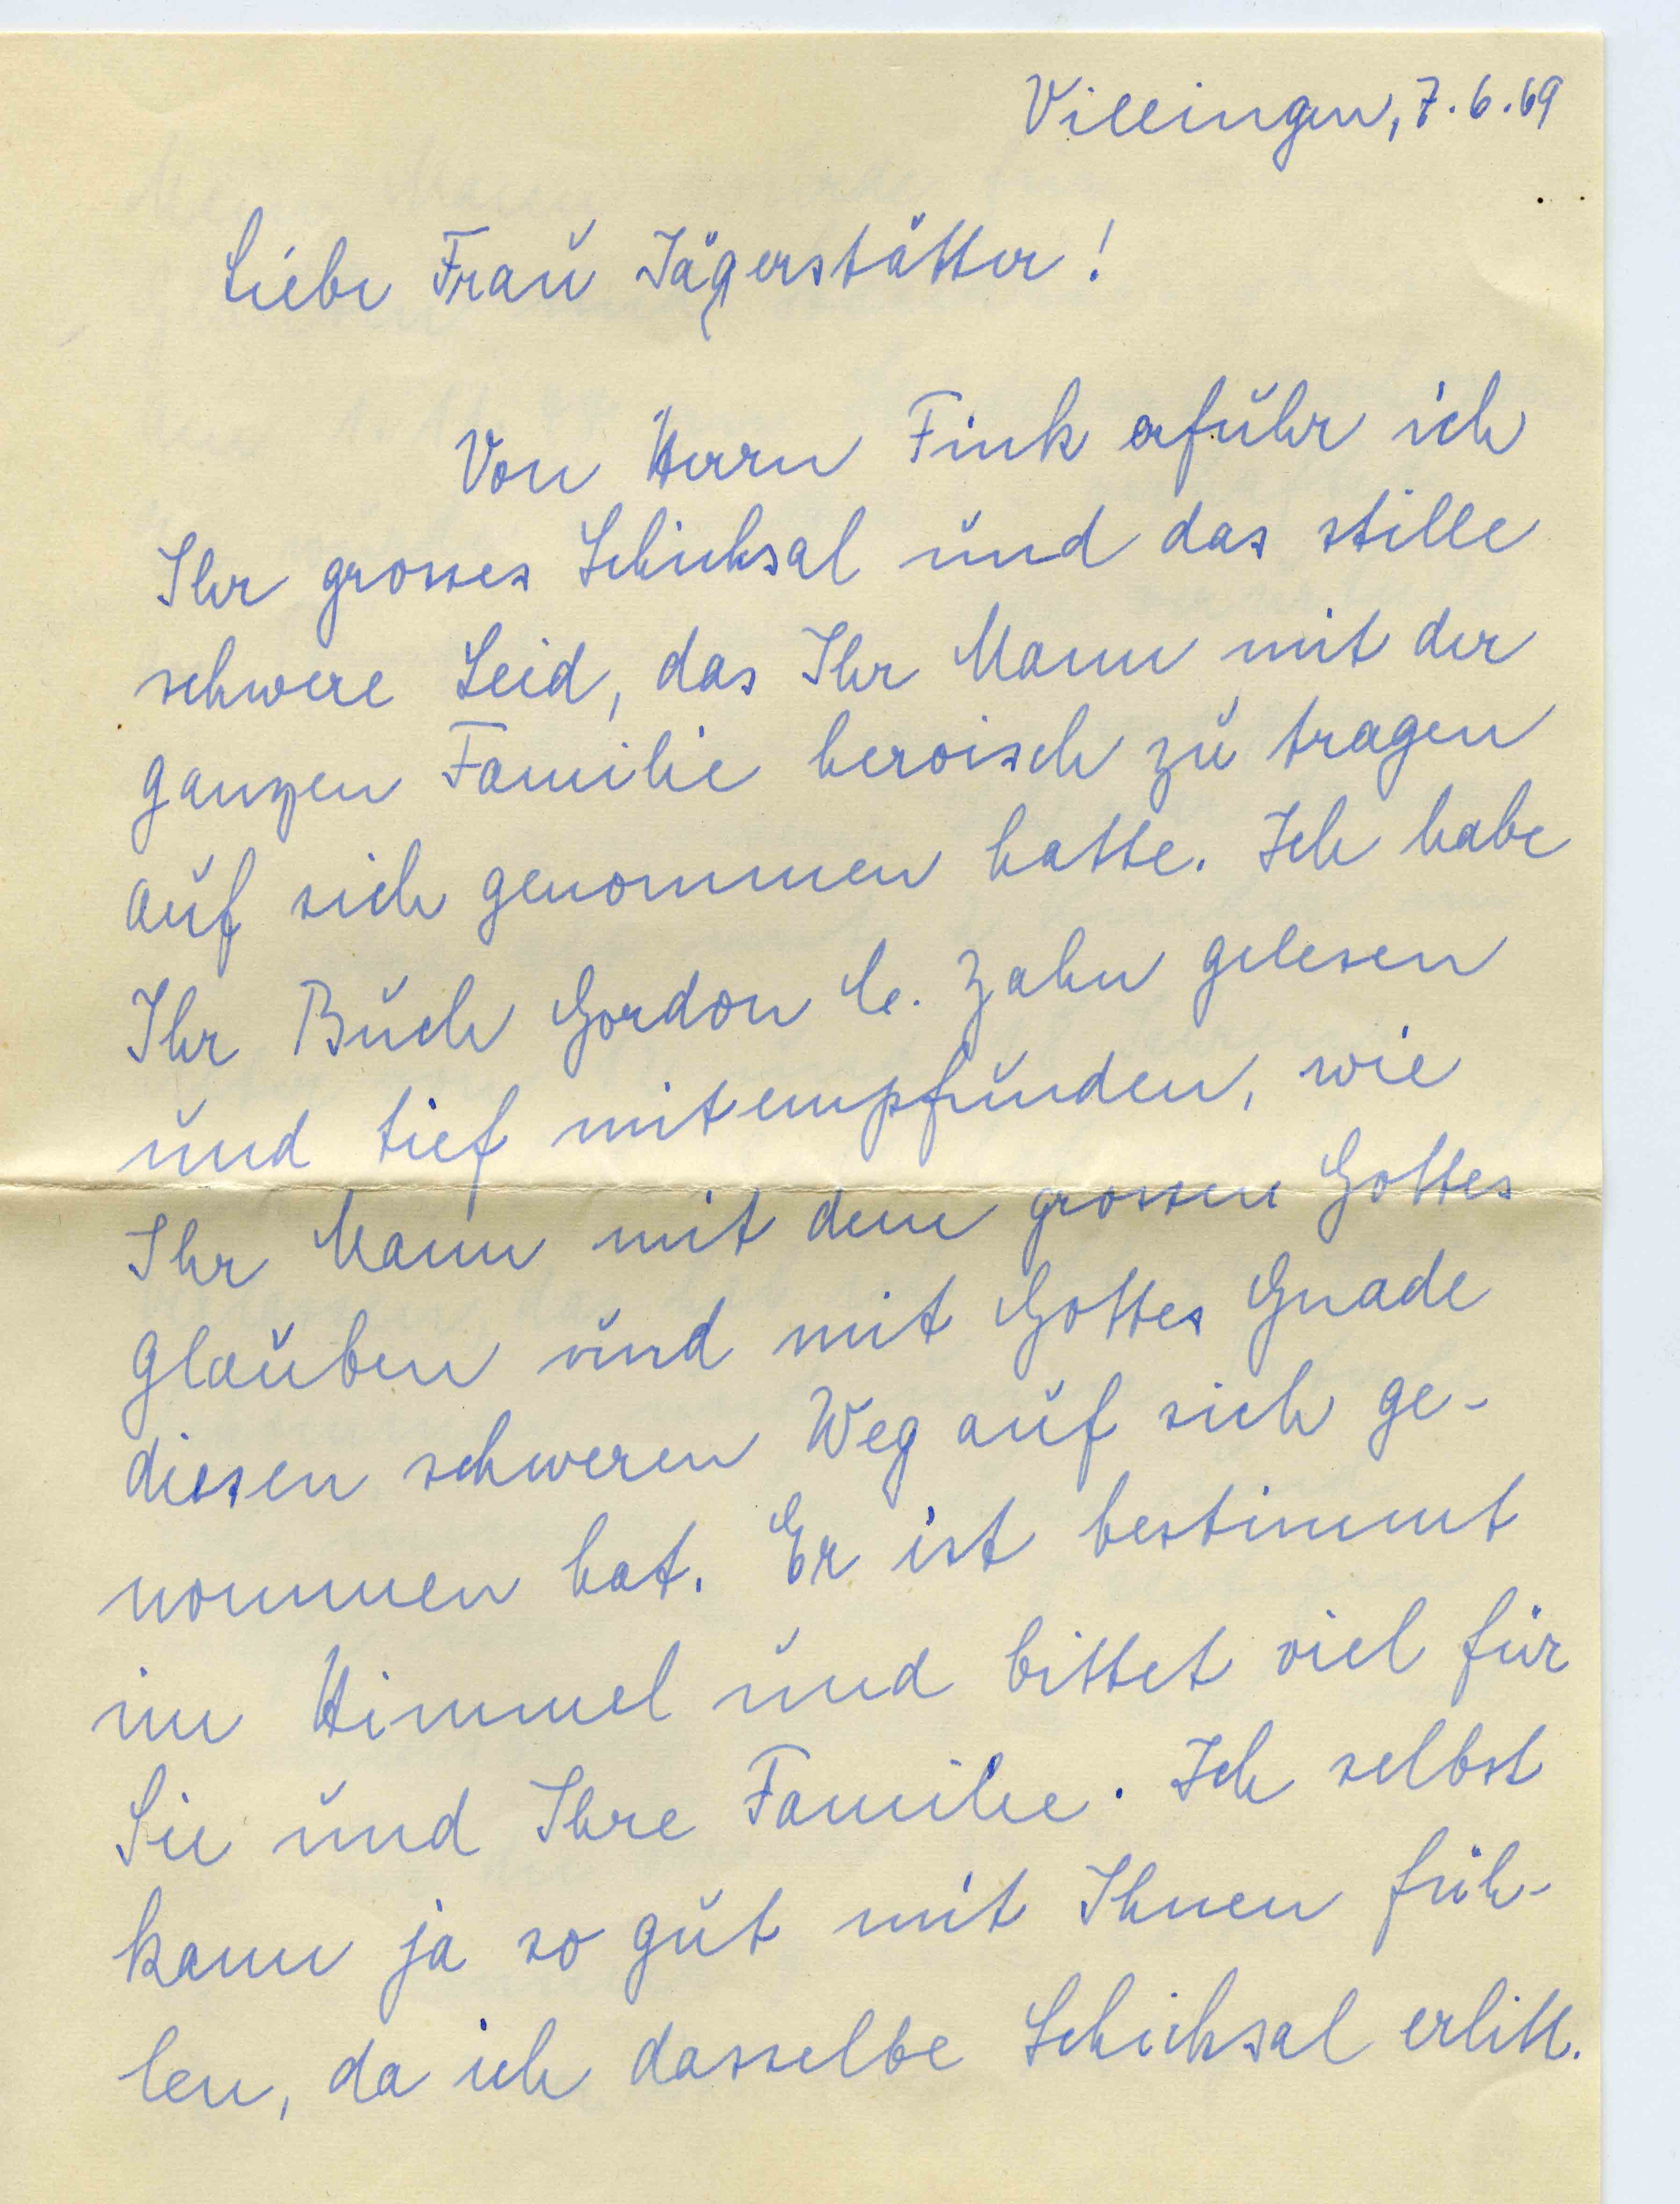 Villingen, 7.6.69
Liebe Frau Jägerstätter!
Von Herrn Fink erfuhr ich
Ihr grosses Schicksal und das stille
schwere Leid, das Ihr Mann mit der
ganzen Familie heroisch zu tragen
auf sich genommen hatte. Ich habe
Ihr Buch Gordon C. Zahn gelesen
und tief mitempfunden, wie
Ihr Mann mit dem grossen Gottes
glauben und mit Gottes Gnade
diesen schweren Weg auf sich ge-
nommen hat. Er ist bestimmt
im Himmel und bittet viel für
Sie und Ihre Familie. Ich selbst
kann ja so gut mit Ihnen füh-
len, da ich dasselbe Schicksal erlitt.